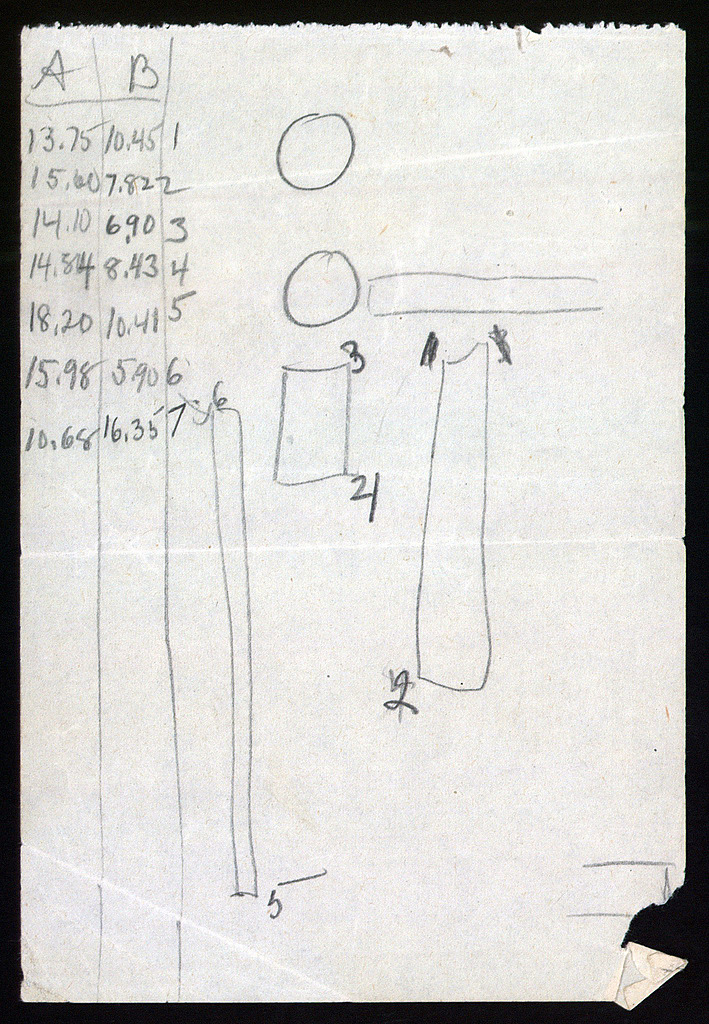 A B
13.75 10.45 1
15.60 7.82 2
14.10 6.90 3
14.84 8.43 4
18.20 10.41 5
15.98 5.90 6
10.68 16.35 7
3
6
2
5